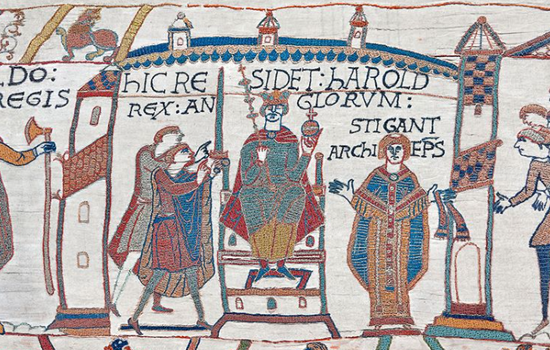 DO:
REGIS
HIC RE SIDET: HAROLD
REX: AN GLORVM:
STIGANT
ARCHI EPS